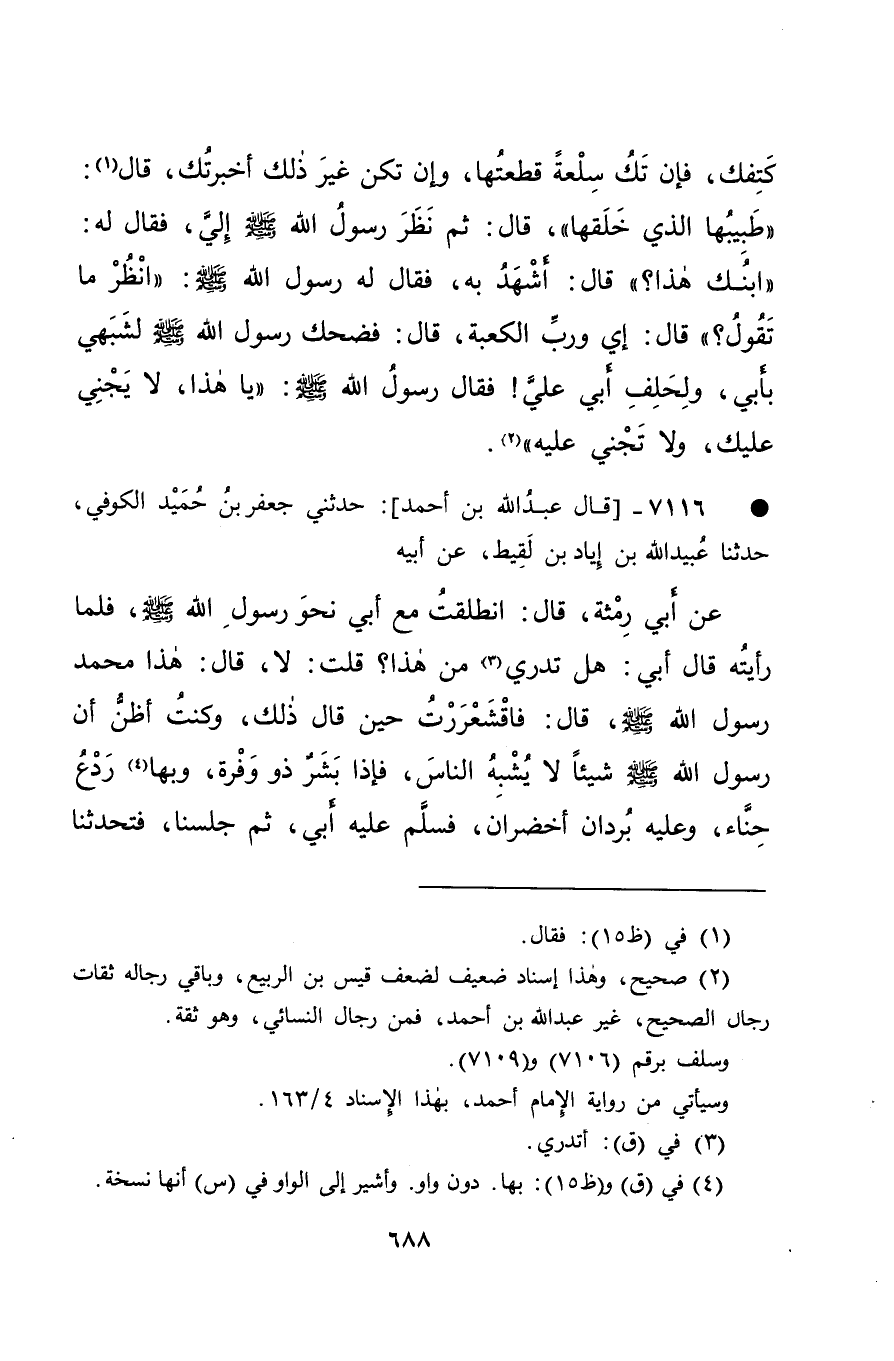 كَتِفك، فإن تَكُ سِلْعةً قطعتُها، وإن تكن غيرَ ذٰلك أخبرتُك، قال(١):
«طَبِيبُها الذي خَلَقها»، قال: ثم نَظَرَ رسولُ الله ﷺ إِليَّ، فقال له:
«ابنُـك هٰذا؟» قال: أَشْهَدُ به، فقال له رسول الله ﷺ: «انْظُرْ ما
تَقُولُ؟» قال: إي وربِّ الكعبة، قال: فضحك رسول الله ﷺ لشَبَهي
بأَبي، ولِحَلِفِ أَبي عليَّ! فقال رسولُ الله ﷺ: «يا هٰذا، لا يَجْنِي
عليك، ولا تَجْني عليه»(٢).
● ٧١١٦ - [قـال عبـدُالله بن أحمد]: حدثني جعفر بنُ حُمَيْد الكوفي،
حدثنا عُبيدالله بن إِياد بن لَقِيط، عن أبيه
عن أَبي رِمْثة، قال: انطلقتُ مع أبي نحوَ رسولِ الله ﷺ، فلما
رأيتُه قال أبي: هل تدري(٣) من هٰذا؟ قلت: لا، قال: هٰذا محمد
رسول الله ﷺ، قال: فاقْشَعْرَرْتُ حين قال ذٰلك، وكنتُ أظنُّ أن
رسول الله ﷺ شيئاً لا يُشْبِهُ الناسَ، فإذا بَشَرٌ ذو وَفْرة، وبها(٤) رَدْعُ
حِنَّاء، وعليه بُردان أخضران، فسلَّم عليه أَبي، ثم جلسنا، فتحدثنا
(١) في (ظ١٥): فقال.
(٢) صحيح، وهٰذا إسناد ضعيف لضعف قيس بن الربيع، وباقي رجاله ثقات
رجال الصحيح، غير عبدالله بن أحمد، فمن رجال النسائي، وهو ثقة.
وسلف برقم (٧١٠٦) و(٧١٠٩).
وسيأتي من رواية الإمام أحمد، بهٰذا الإِسناد ١٦٣/٤.
(٣) في (ق): أتدري.
(٤) في (ق) و(ظ١٥): بها. دون واو. وأشير إلى الواو في (س) أنها نسخة.
٦٨٨